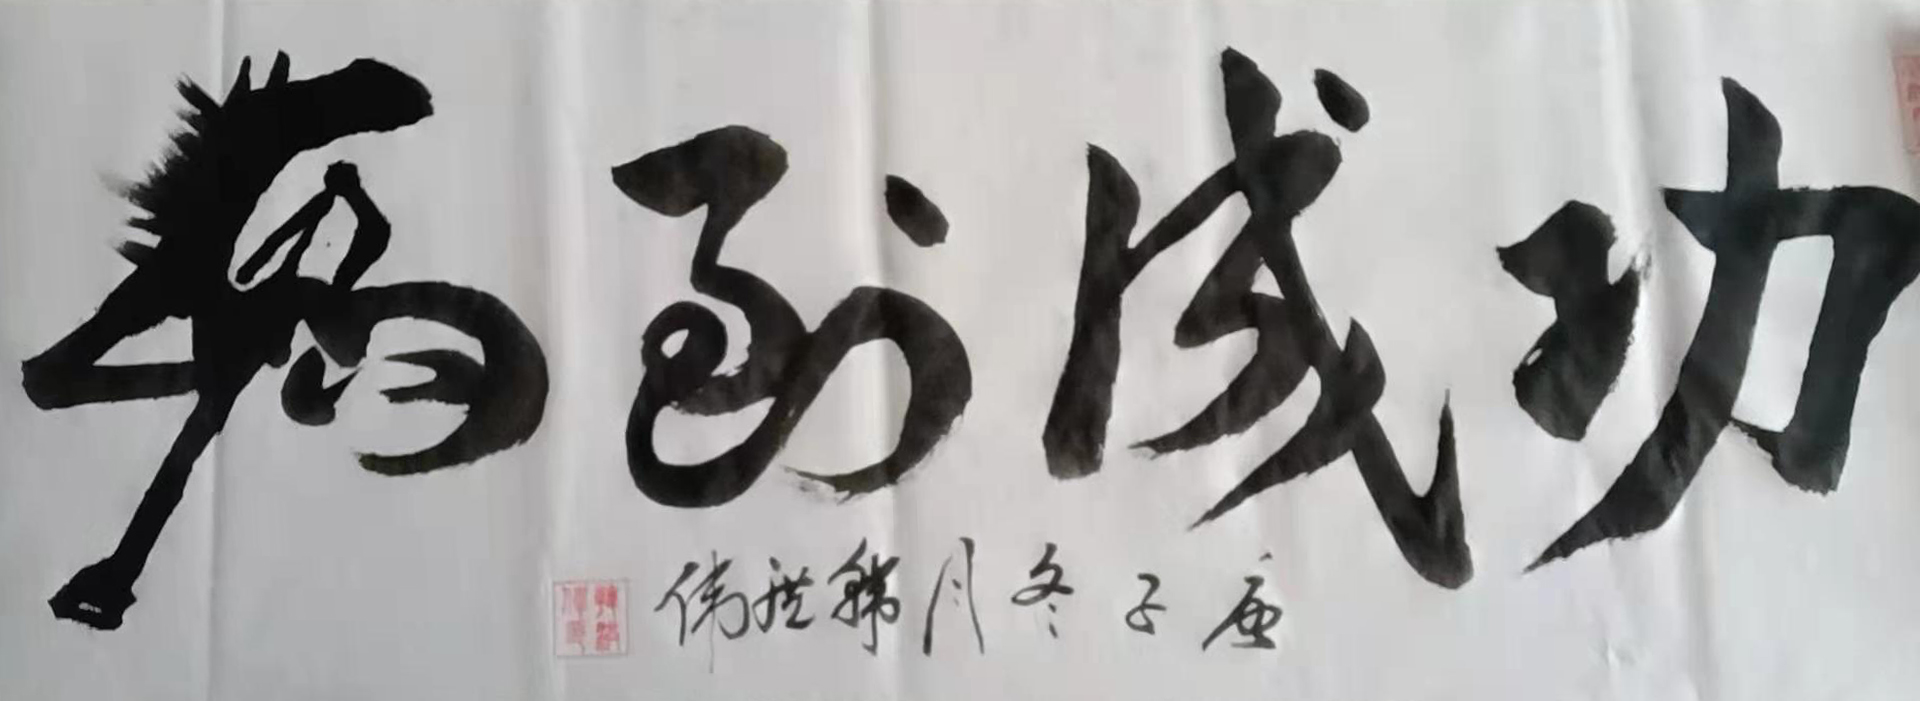 馬到成功
庚子冬月韩伟